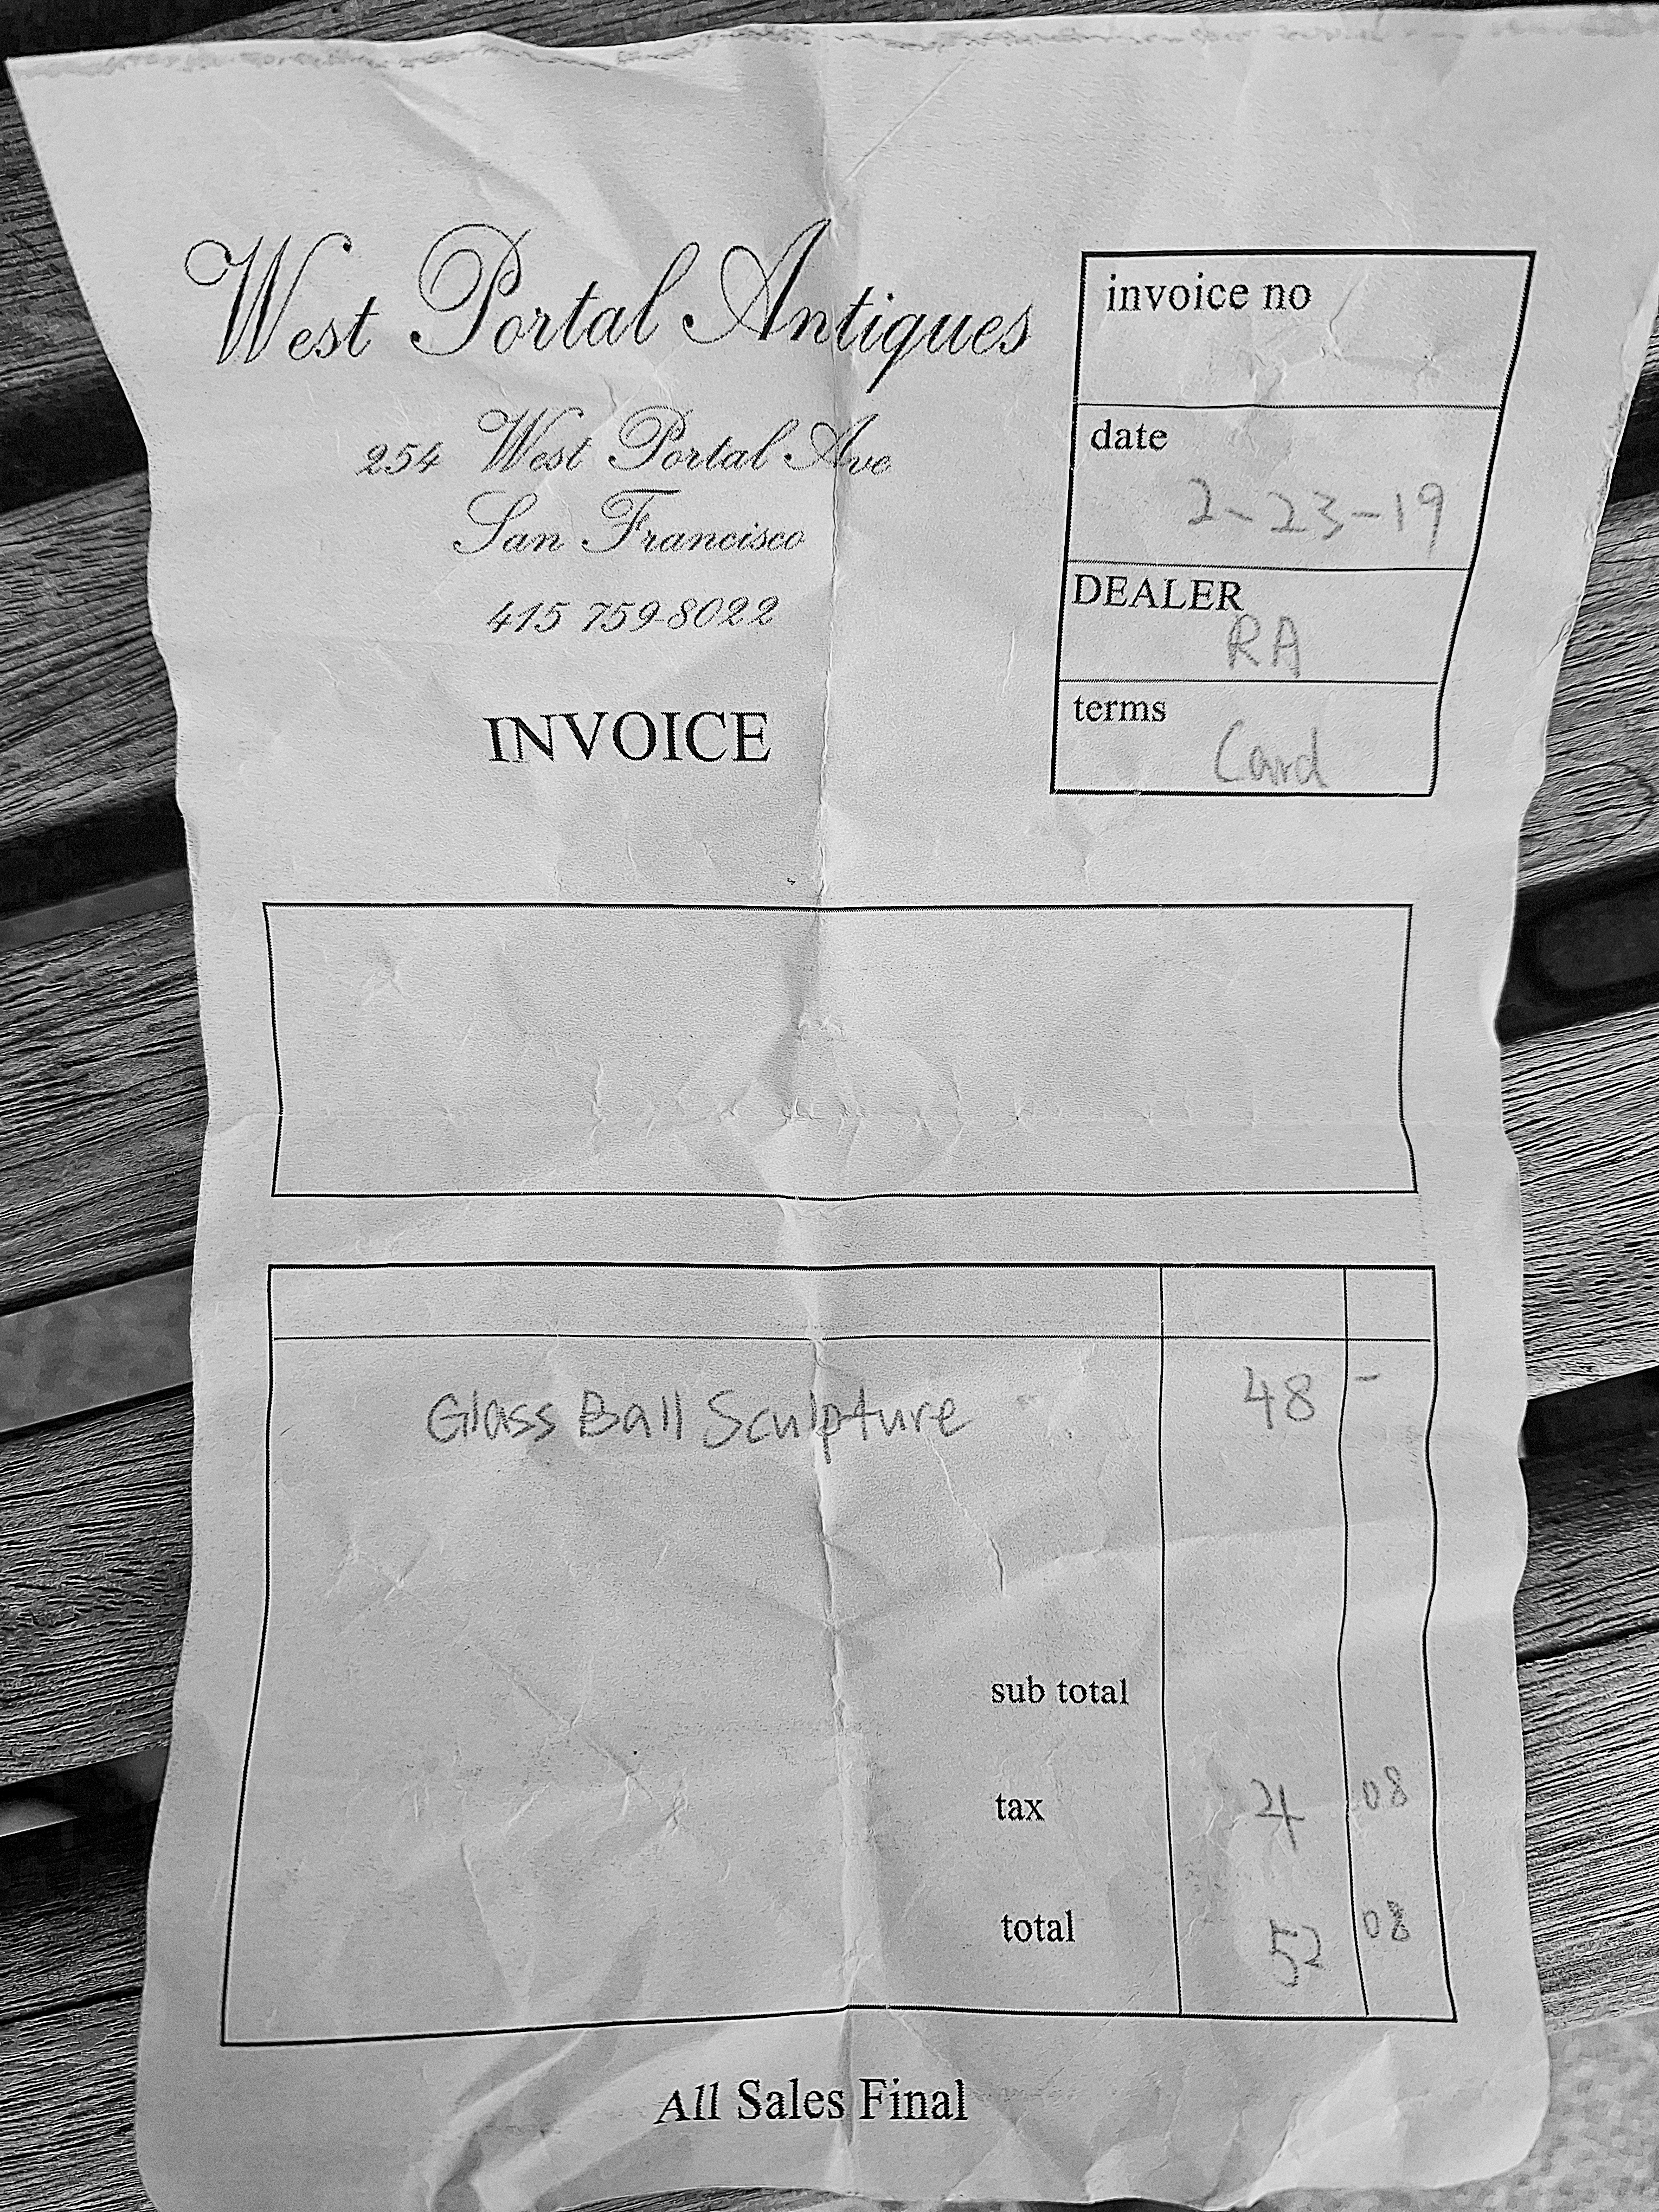 West Portal Antiques
254 West Portal Ave
San Francisco
415 759-8022
INVOICE
invoice no
date
2-23-19
DEALER
RA
terms
Card
Glass Ball Sculpture 48 -
sub total
tax 4 08
total 52 08
All Sales Final